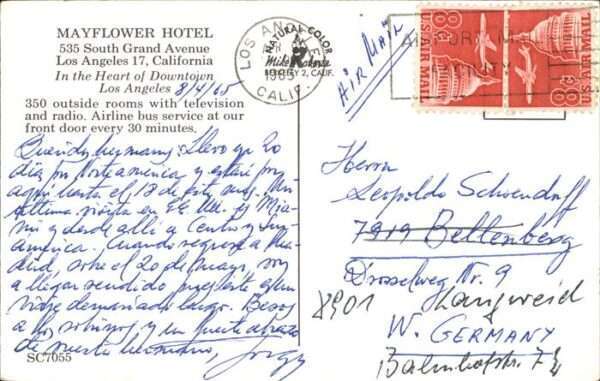 MAYFLOWER HOTEL
535 South Grand Avenue
Los Angeles 17, California
In the Heart of Downtown
Los Angeles 8/4/65
350 outside rooms with television
and radio. Airline bus service at our
front door every 30 minutes.
Querido hermano: Llevo ya 20
días por Norteamérica y estaré por
aquí hasta el 18 de este mes. Mi
última visita en EE. UU. es Mia-
mi y desde allí a Centro y Sur-
américa. Cuando regrese a Ma-
drid, sobre el 20 de Mayo, voy
a llegar rendido pues este es un
viaje demasiado largo. Besos
a los sobrinos y un fuerte abrazo
de vuestro hermano, Jorge
SC7055
LOS ANGELES
CALIF.
1965
NATURAL COLOR
Mike Roberts
BERKELEY 2, CALIF.
AIR MAIL
8¢ US AIR MAIL
8¢ US AIR MAIL
Herrn
Leopoldo Schoendorff
7919 Bellenberg
Drosselweg Nr. 9
8901 Langweid
W. GERMANY
Bahnhofstr.